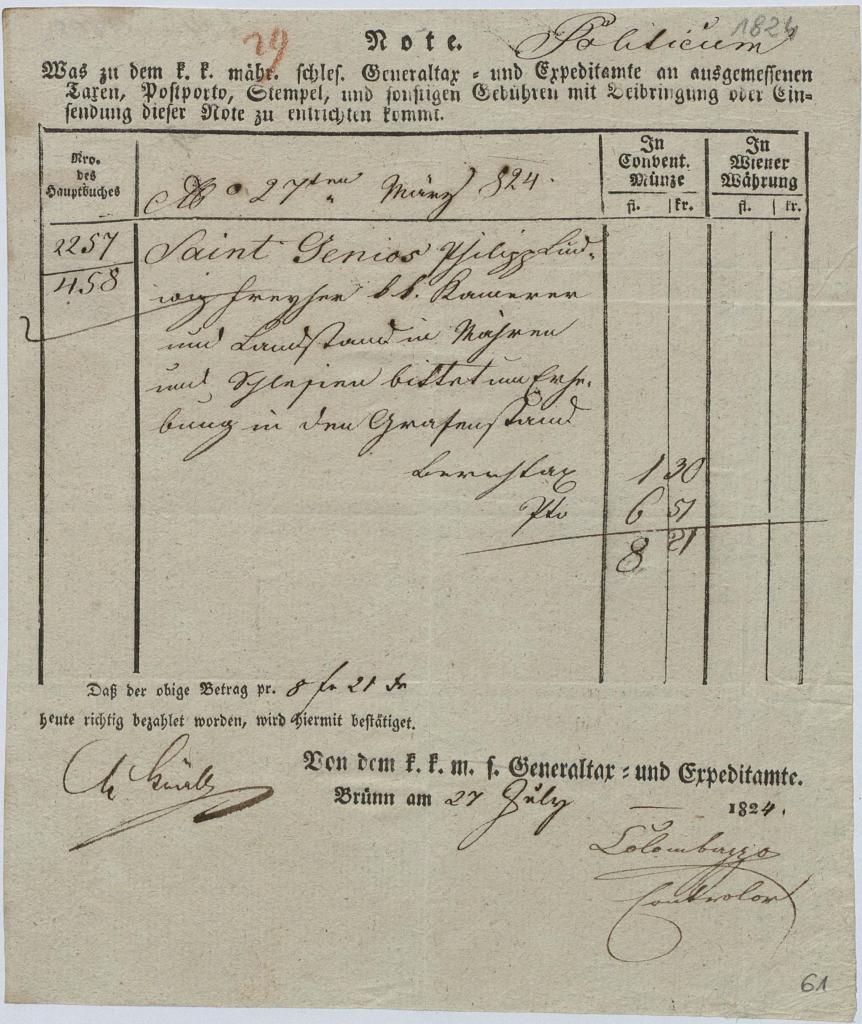 1824
29
Note. Politicum
Was zu dem k. k. mähr. schles. Generaltax- und Expeditamte an ausgemessenen
Taxen, Postporto, Stempel, und sonstigen Gebühren mit Beibringung oder Ein-
sendung dieser Note zu entrichten kommt.
Nro. des Hauptbuches
27ten März 824.
In Convent. Münze
fl. kr.
In Wiener Währung
fl. kr.
2257
458
Saint Genios Philipp Lud-
wig Freyherr k k. Kamerer
und Landstand in Mähren
und Schlesien bittet um Erhe-
bung in den Grafenstand
Berichtax 1 30
Pto 6 51
8 21
Daß der obige Betrag pr. 8 fr 21 kr
heute richtig bezahlet worden, wird hiermit bestätiget.
Von dem k. k. m. s. Generaltax- und Expeditamte.
Brünn am 27 July 1824.
Controlor
61